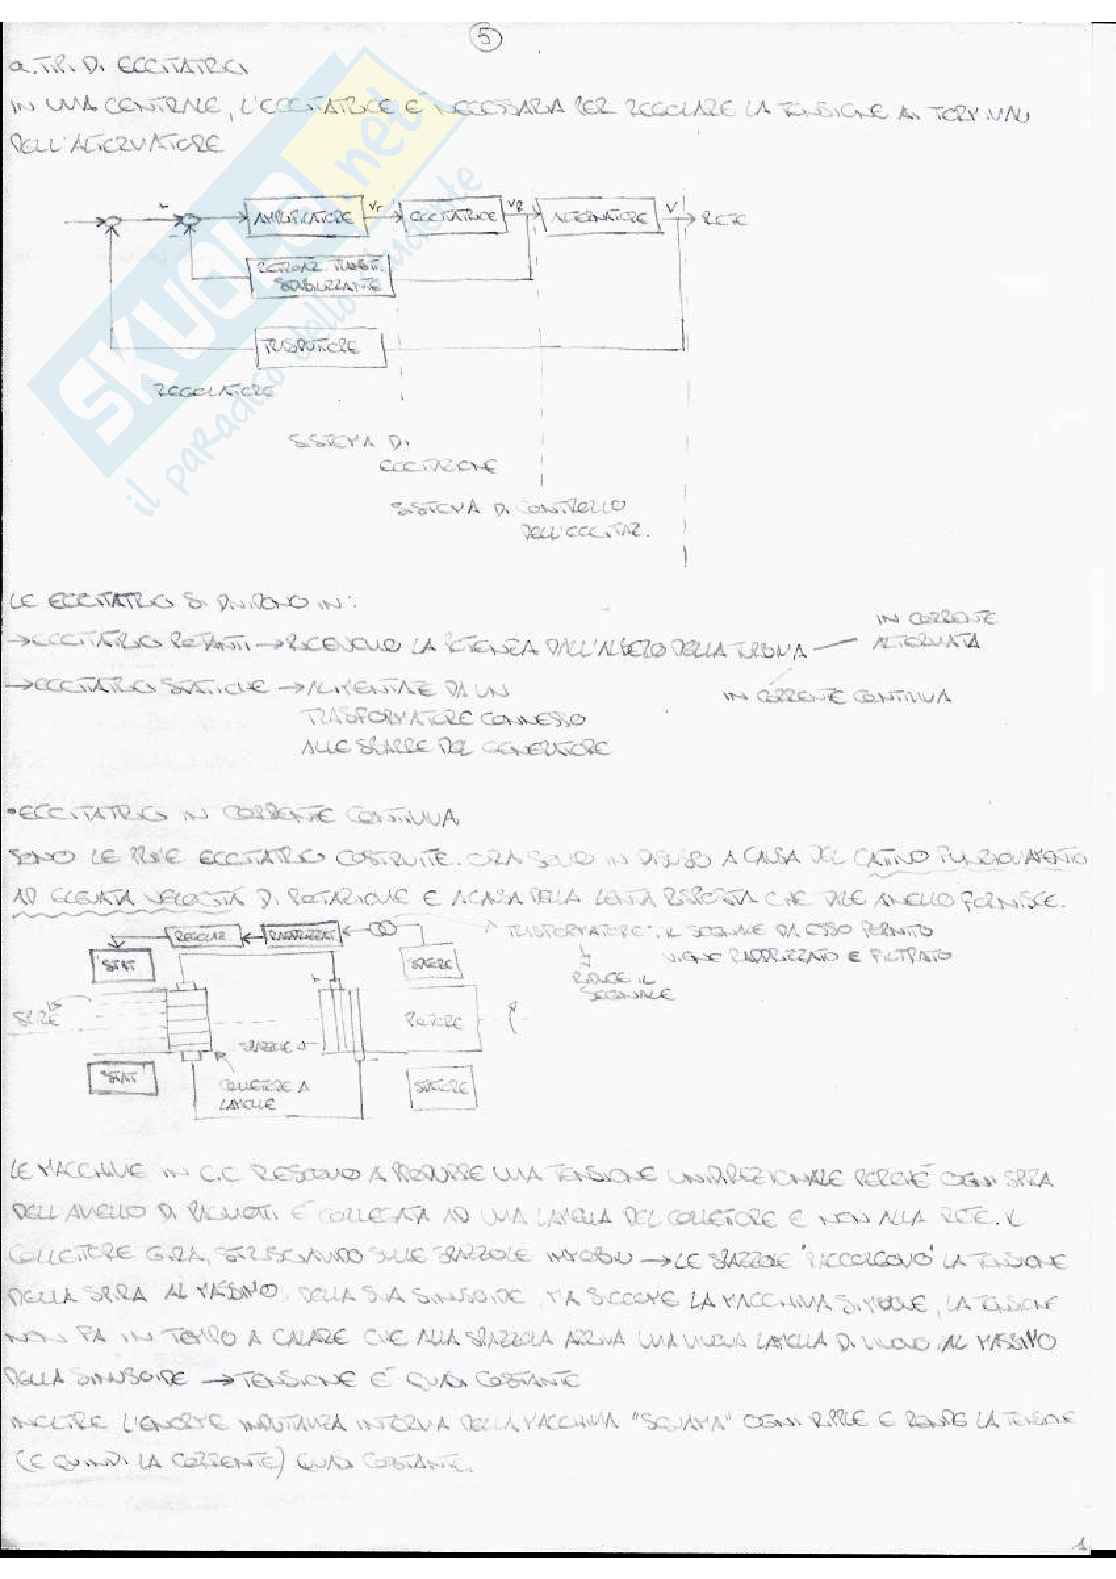 5
a. TIPI DI ECCITATRICI
IN UNA CENTRALE, L'ECCITATRICE E' NECESSARIA PER REGOLARE LA TENSIONE AI TERMINALI
DELL'ALTERNATORE
AMPLIFICATORE Vr ECCITATRICE ALTERNATORE V RETE
RETROAZ. TRANSIT.
STABILIZZANTE
TRASDUTTORE
REGOLATORE
SISTEMA DI
ECCITAZIONE
SISTEMA DI CONTROLLO
DELL'ECCITAZ.
LE ECCITATRICI SI DIVIDONO IN:
→ECCITATRICI ROTANTI →RICEVONO LA POTENZA DALL'ALBERO DELLA TURBINA — IN CORRENTE
ALTERNATA
→ECCITATRICI STATICHE →ALIMENTATE DA UN IN CORRENTE CONTINUA
TRASFORMATORE CONNESSO
ALLE SBARRE DEL GENERATORE
•ECCITATRICI IN CORRENTE CONTINUA
SONO LE PRIME ECCITATRICI COSTRUITE. ORA SONO IN DISUSO A CAUSA DEL CATTIVO FUNZIONAMENTO
AD ELEVATA VELOCITÀ DI ROTAZIONE E A CAUSA DELLA LENTA RISPOSTA CHE TALE ANELLO FORNISCE.
REGOLAZ RADDRIZZAT TRASFORMATORE: IL SEGNALE DA ESSO FORNITO
STAT VIENE RADDRIZZATO E FILTRATO
RIDUCE IL
SEGNALE
SPIRE ROTORE
SPAZZOLE
STAT COLLETTORE A STATORE
LAMELLE
LE MACCHINE IN C.C RIESCONO A PRODURRE UNA TENSIONE UNIDIREZIONALE PERCHÉ OGNI SPIRA
DELL'ANELLO DI PACINOTTI È COLLEGATA AD UNA LAMELLA DEL COLLETTORE E NON ALLA RETE. IL
COLLETTORE GIRA, STRISCIANDO SULLE SPAZZOLE IMMOBILI →LE SPAZZOLE "RACCOLGONO" LA TENSIONE
DELLA SPIRA AL MASSIMO DELLA SUA SINUSOIDE, MA SICCOME LA MACCHINA SI MUOVE, LA TENSIONE
NON FA IN TEMPO A CALARE CHE ALLA SPAZZOLA ARRIVA UNA NUOVA LAMELLA DI NUOVO AL MASSIMO
DELLA SINUSOIDE → TENSIONE E' QUASI COSTANTE
INOLTRE L'ENORME INDUTTANZA INTERNA DELLA MACCHINA "SPIANA" OGNI RIPPLE E RENDE LA TENSIONE
(E QUINDI LA CORRENTE) QUASI COSTANTE.
1
SKUOLA.net
il paradiso dello studente